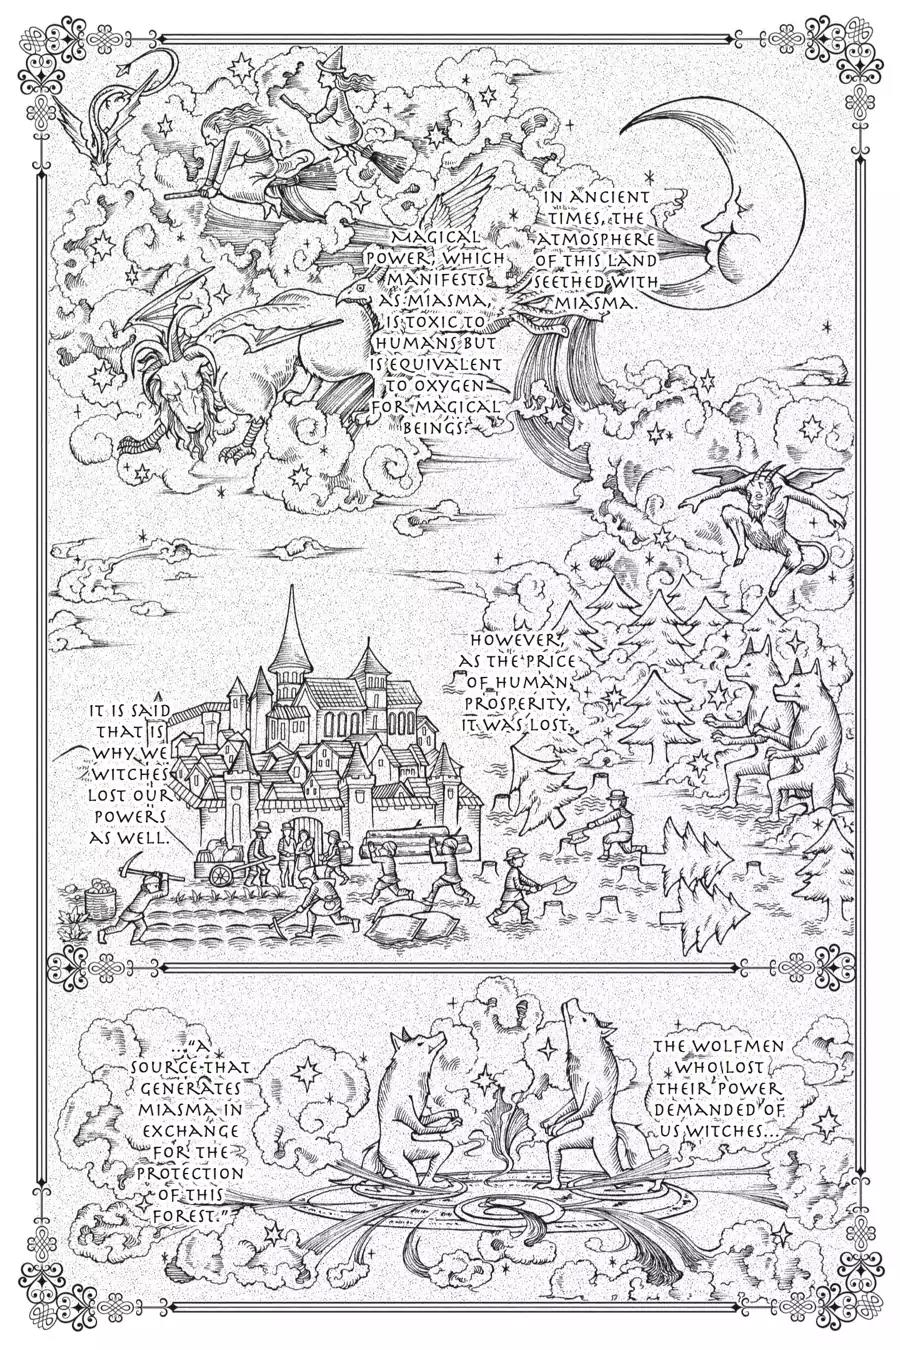 IN ANCIENT
TIMES, THE
ATMOSPHERE
OF THIS LAND
SEETHED WITH
MIASMA.
MAGICAL
POWER, WHICH
MANIFESTS
AS MIASMA,
IS TOXIC TO
HUMANS BUT
IS EQUIVALENT
TO OXYGEN
FOR MAGICAL
BEINGS.
HOWEVER,
AS THE PRICE
OF HUMAN
PROSPERITY,
IT WAS LOST.
IT IS SAID
THAT IS
WHY WE
WITCHES
LOST OUR
POWERS
AS WELL.
THE WOLFMEN
WHO LOST
THEIR POWER
DEMANDED OF
US WITCHES...
..."A
SOURCE THAT
GENERATES
MIASMA IN
EXCHANGE
FOR THE
PROTECTION
OF THIS
FOREST."